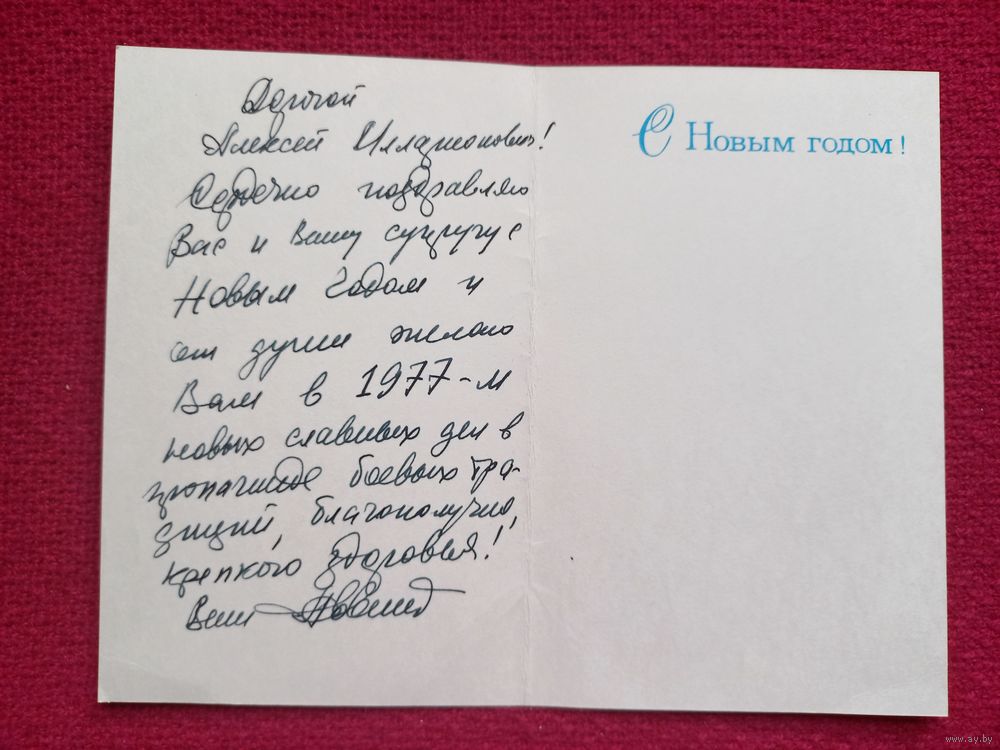 Дорогой
Алексей Илларионович!
Сердечно поздравляю
Вас и Вашу супругу с
Новым Годом и
от души желаю
Вам в 1977-м
новых славных дел в
пропаганде боевых тра-
диций, благополучия,
крепкого здоровья!
Ваш
С Новым годом!
www.ay.by